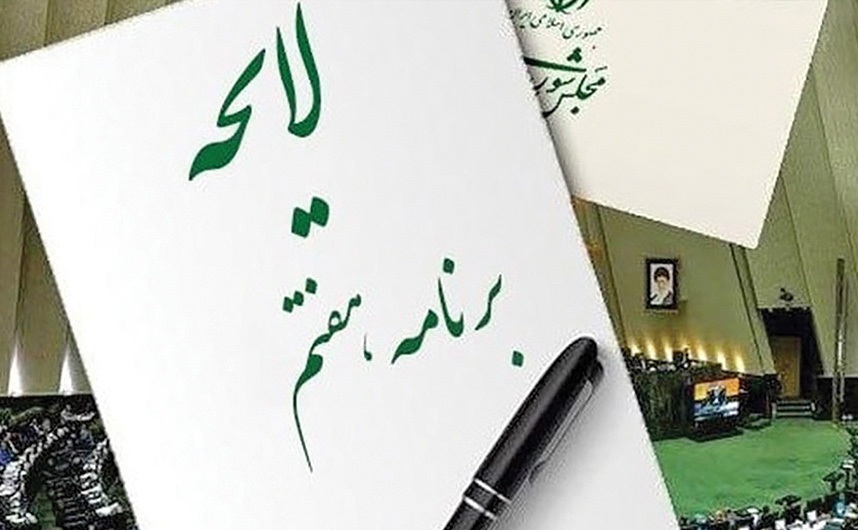 لایحه
برنامه هفتم
جمهوری اسلامی ایران
مجلس شورا